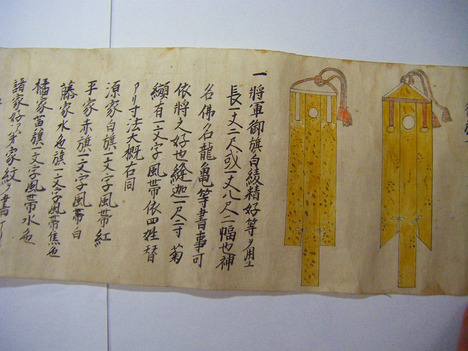 一將軍御旗白綾精好等ヲ用ユ
長一丈二尺或一丈八尺二幅也神
名佛名龍亀等書事可
依將之好也縫迦一尺二寸菊
綴有一文字風帯依四姓替
アリ寸法大概右同
源家白旗一文字風帯紅
平家赤旗一文字風帯白
藤家水色旗一文字風帯焦色
橘家黄旗一文字風帯水色
諸家好ニ

家紋ヲ書